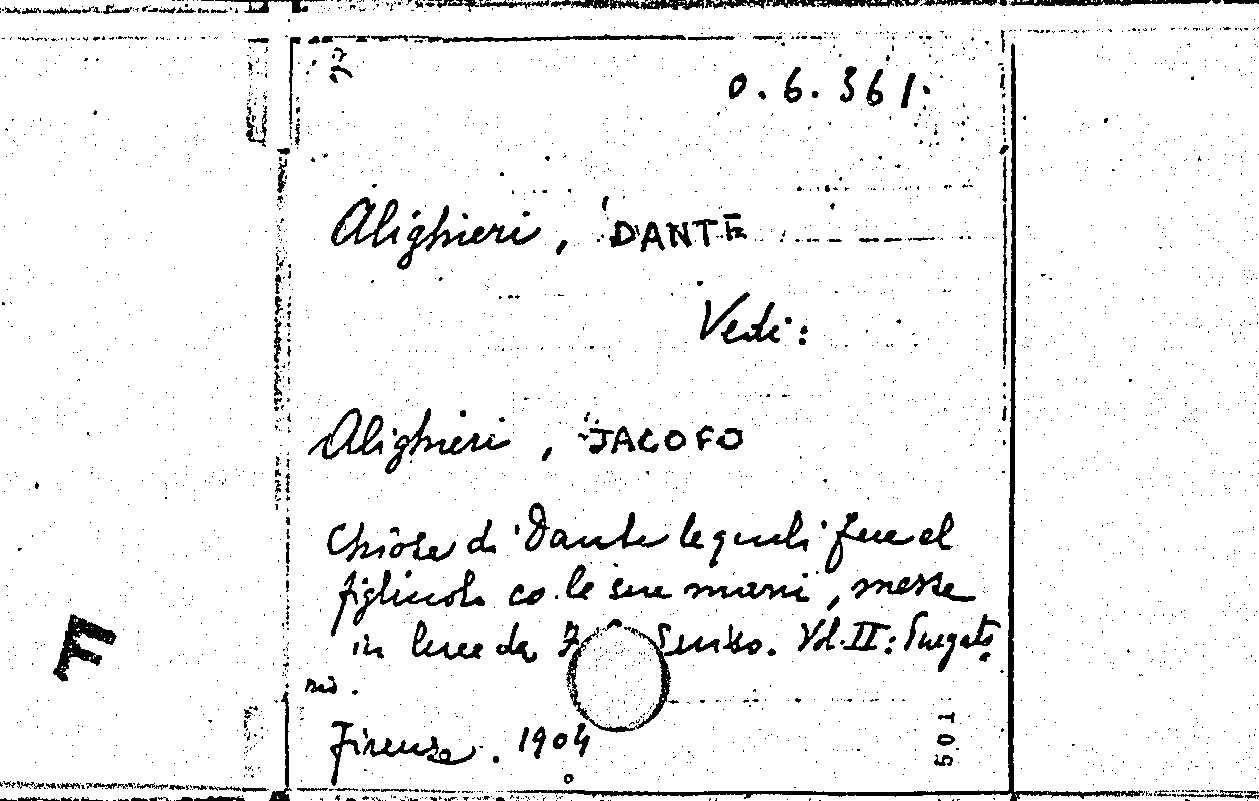 0.6.361.
Alighieri, DANTE
Vedi:
Alighieri, JACOPO
Chiose di Dante le quali fece el
figliuolo co le sue mani, messe
in luce da Luiso. Vol. II: Purgato
rio.
Firenze. 1904
501
F